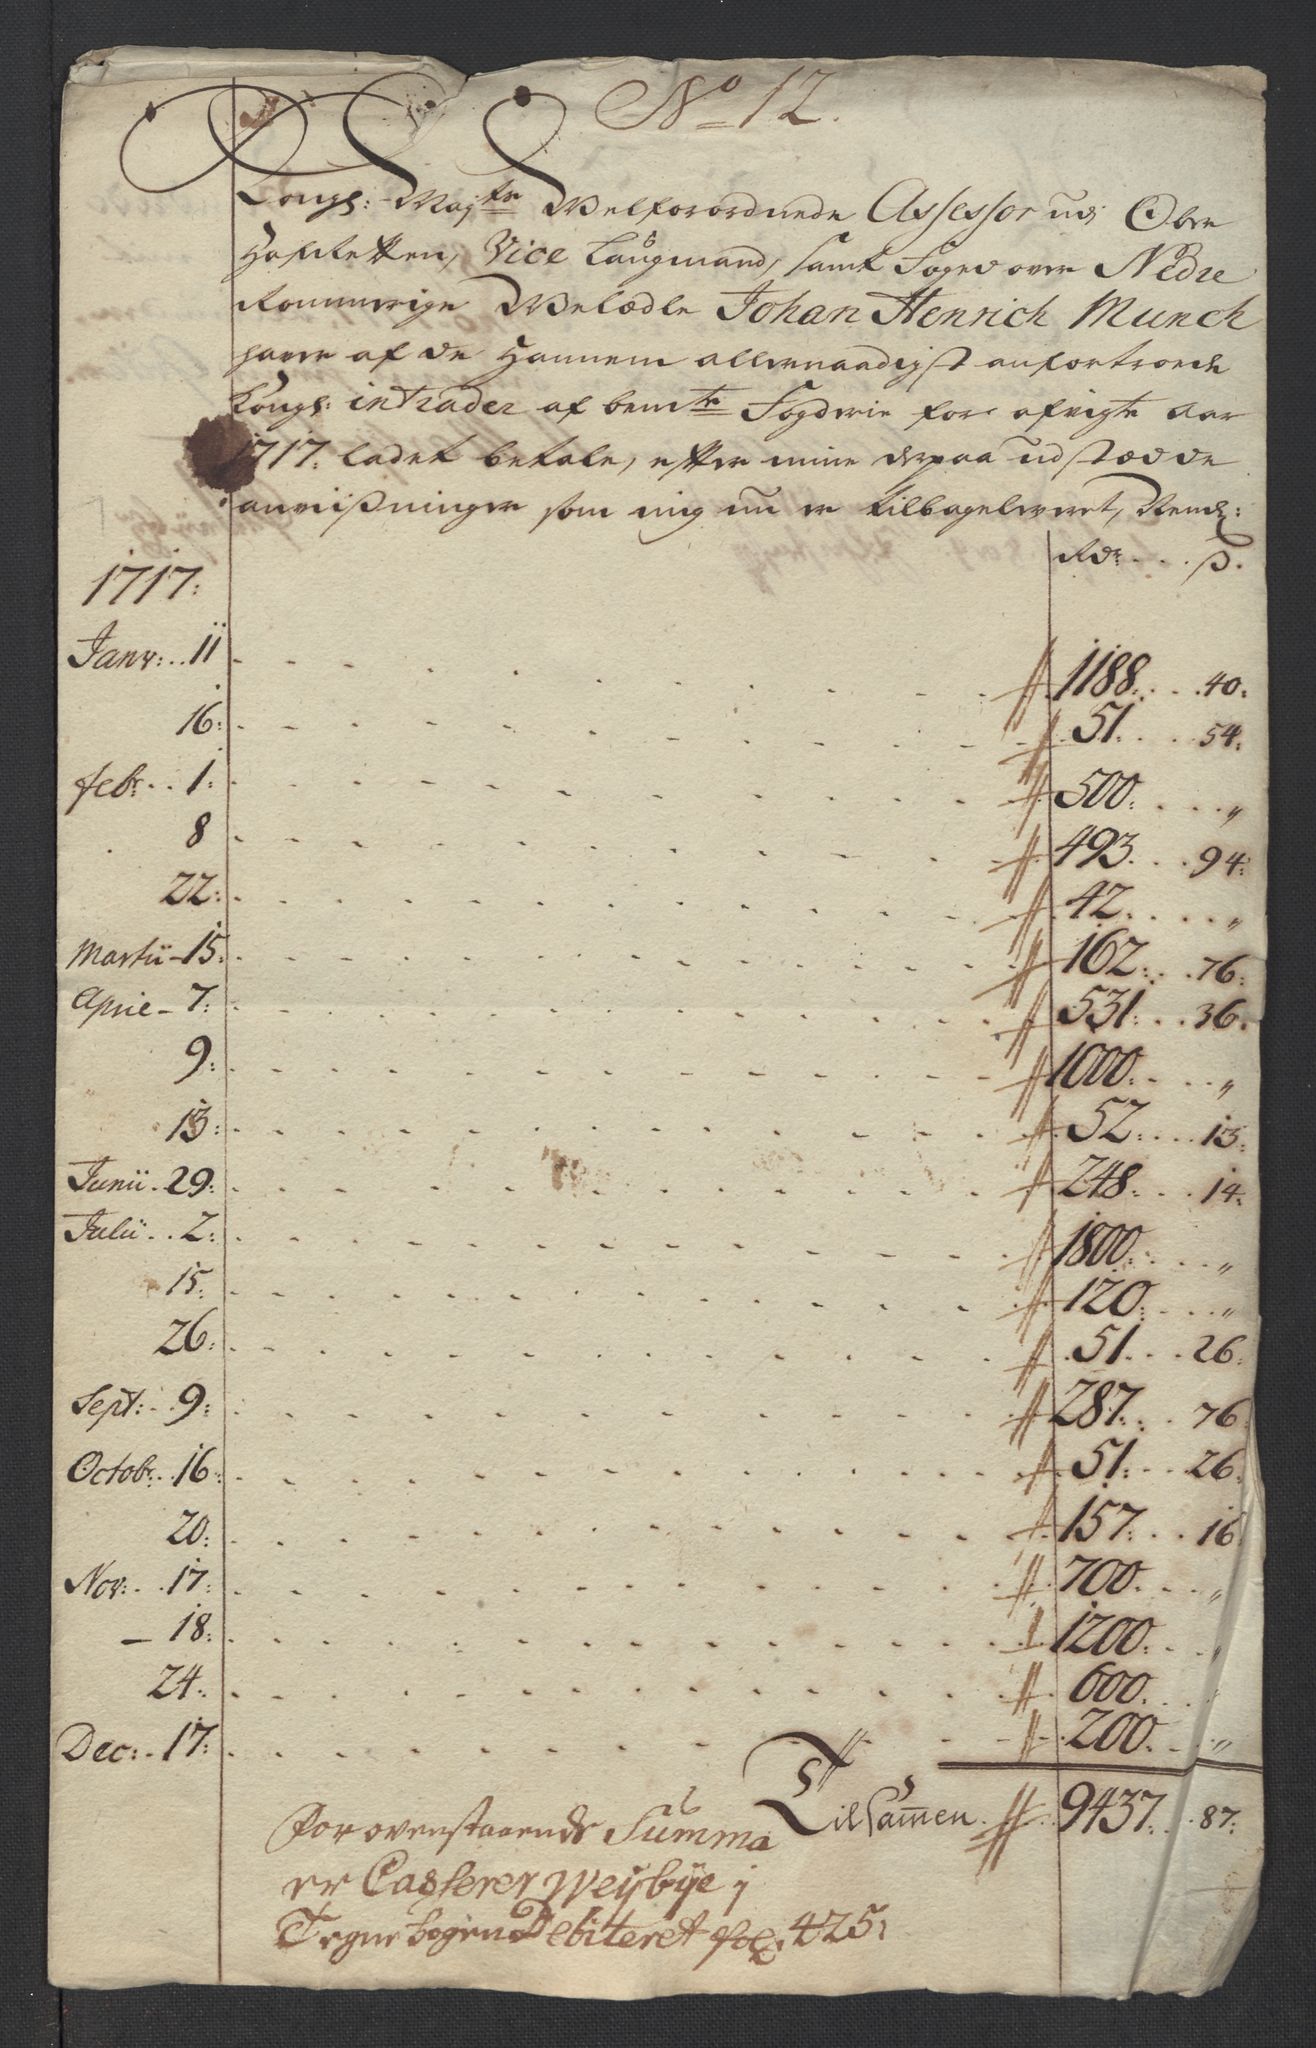 No 12.
Kongl: Maÿtz Welforordnede Assessor udj Ober
Hofretten, Vice Laugmand, samt Foged over Nedre
Rommerige Welædle Johan Henrich Munch
haver af de Hannem allernaadigst anfortroede
Kongl: intrader af bemte Fogderie for afvigte aar
1717: ladet betale, efter mine derpaa udstædde
anviißninger som mig nu er tilbageleveret, Neml:
Rdr. . . . ß.
1717:
Janv: . . 11 . . . 1188: . . . 40:
16: . . . 51: . . . 54:
Febr. . . 1: . . . 500: . . . "
8 . . . 493. . . . 94:
22: . . . 42: . . . "
Martii - 15: . . . 162: . . . 76:
April - 7: . . . 531: . . . 36.
9: . . . 1000: . . . "
13: . . . 52: . . . 13:
Junii . 29: . . . 248: . . . 14:
Julii . . 2: . . . 1800: . . . "
15: . . . 120: . . . "
26: . . . 51. . . . 26:
Sept: . . 9: . . . 287: . . . 76
Octobr. . 16: . . . 51: . . . 26:
20: . . . 157: . . . 16
Nov: . . 17: . . . 700: . . . "
— 18: . . . 1200: . . . "
24: . . . 600. . . .
Dec: . 17: . . . 200: . . . "
Tilsam̅en . 9437: . . 87:
For ovenstaaende Summa
er Casserer Weÿbÿe j
Tegnebogen Debiteret fol: 425: